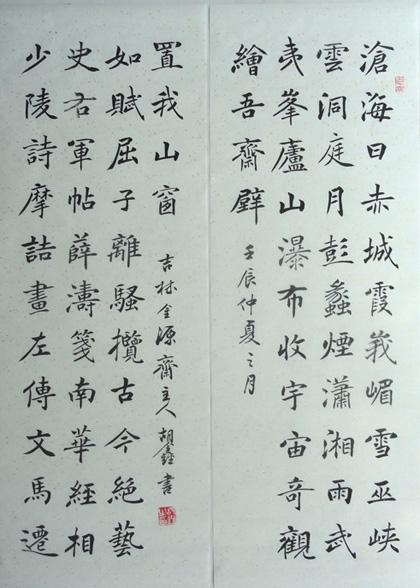 滄海日赤城霞峩嵋雪巫峽
雲洞庭月彭蠡煙瀟湘雨武
夷峯廬山瀑布收宇宙奇觀
繪吾齋壁
壬辰仲夏之月
少陵詩摩詰畫左傳文馬遷
史右軍帖薛濤箋南華經相
如賦屈子離騷攬古今絕藝
置我山窗
吉林金源齋主人胡鑫書